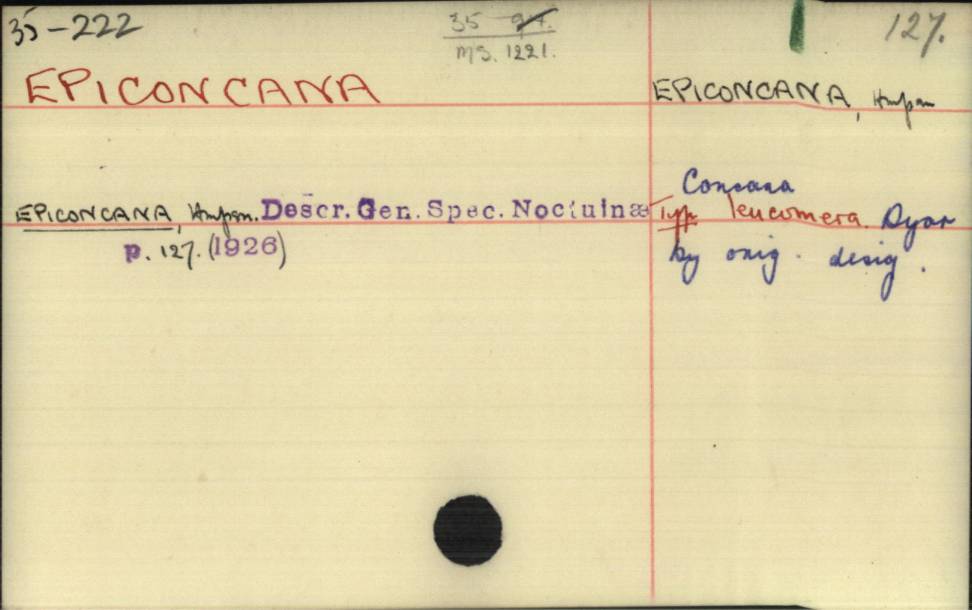 35-222
35 94.
MS. 1221.
127.
EPICONCANA
EPICONCANA, Hmpsn
EPICONCANA, Hmpsn. Descr. Gen. Spec. Noctuinæ
p. 127. (1926)
Concana
Type leucomera. Dyar
by orig. desig.